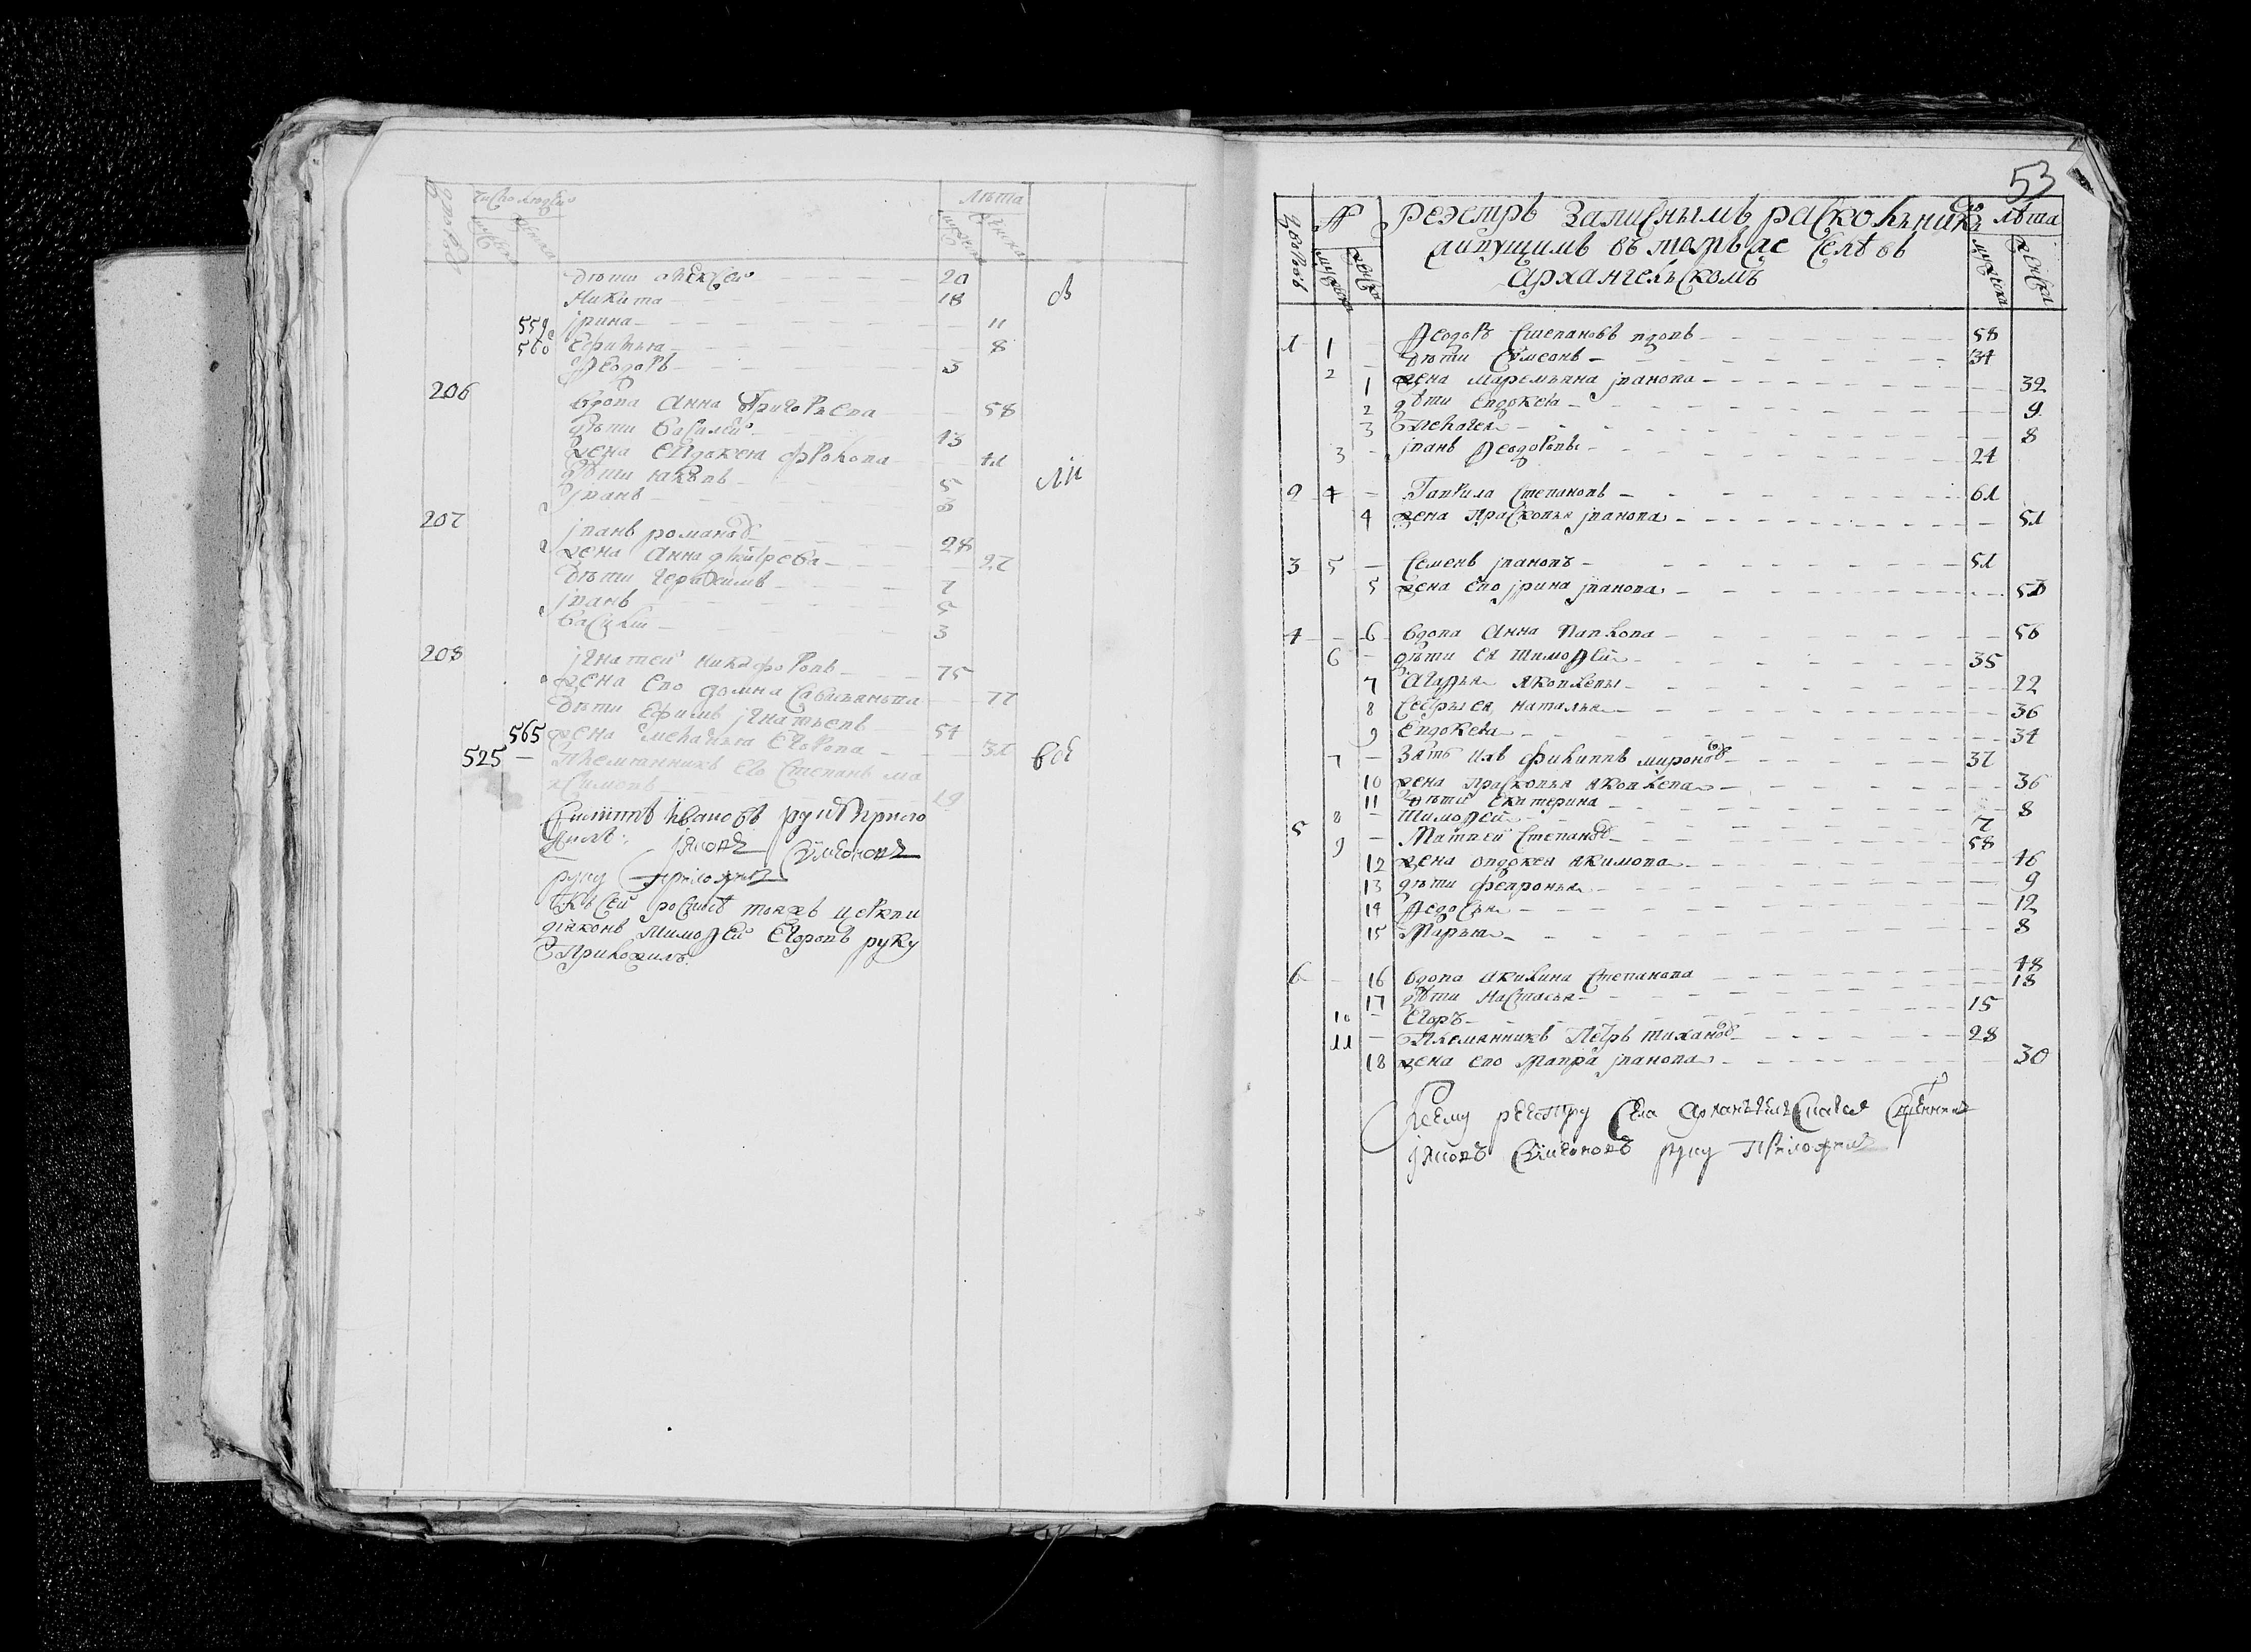 число людей
лѣта
дѣти Алексей 20
Никита 18
559 Ирина 11
560 Ефимья 8
Ѳеодоръ 3
206
вдова Анна Григорьева 58
дѣти Василей 13
жена Евдокея Фролова
дѣти Яковъ 5
Иванъ 3
207
Иванъ романовъ 28
жена Анна 27
дѣти Герасимъ 7
Иванъ 5
Василей 3
208
Игнатей Никифоровъ 75
жена ево Домна Савельянова 77
дѣти Ефимъ Игнатьевъ 54
565 жена Меланья Егорова 31
525 — Племянникъ Его Степанъ ма
ксимовъ 19
Ивановъ руку прило
жилъ: Іяковъ Симеоновъ
руку приложилъ
Къ сей росписѣ тояжъ церкви
діаконъ Тимоѳей Егоровъ руку
Приложилъ.
53
реэстръ Записнымъ расколникамъ
живущимъ въ томъ же Селѣ въ
архангельскомъ
лѣта
1 1 — Ѳеодоръ Степановъ вдовъ 58
2 дѣти Симеонъ 34
1 жена Маремьяна Іванова 32
2 дѣти Евдокея 9
3 Пелагея 8
3 — Іванъ Ѳеодоровъ 24
2 4 — Гаврила Степановъ 61
4 жена Прасковья Іванова 51
3 5 — Семенъ Івановъ 51
5 жена ево Ірина Іванова 50
4 — 6 вдова Анна Павлова 56
6 — дѣти ея Тимоѳей 35
7 Агаѳья Яковлевы 22
8 Сестры ея Наталья 36
9 Евдокея 34
7 — Зять ихъ Филиппъ Мироновъ 37
10 жена Прасковья Яковлева 36
11 дѣти Екатерина 8
8 — Тимоѳей 7
5 9 — Матвей Степановъ 58
12 жена Овдокея Якимова 46
13 дѣти Февронья 9
14 Ѳедосья 12
15 Марья 8
6 — 16 вдова Акилина Степанова 48
17 дѣти Настасья 18
10 — Егоръ 15
11 — Племянникъ Петръ Тихановъ 28
18 жена ево Мавра Іванова 30
К сему реестру Села Архангельскаго Священникъ
Іяковъ Симеоновъ руку Приложилъ